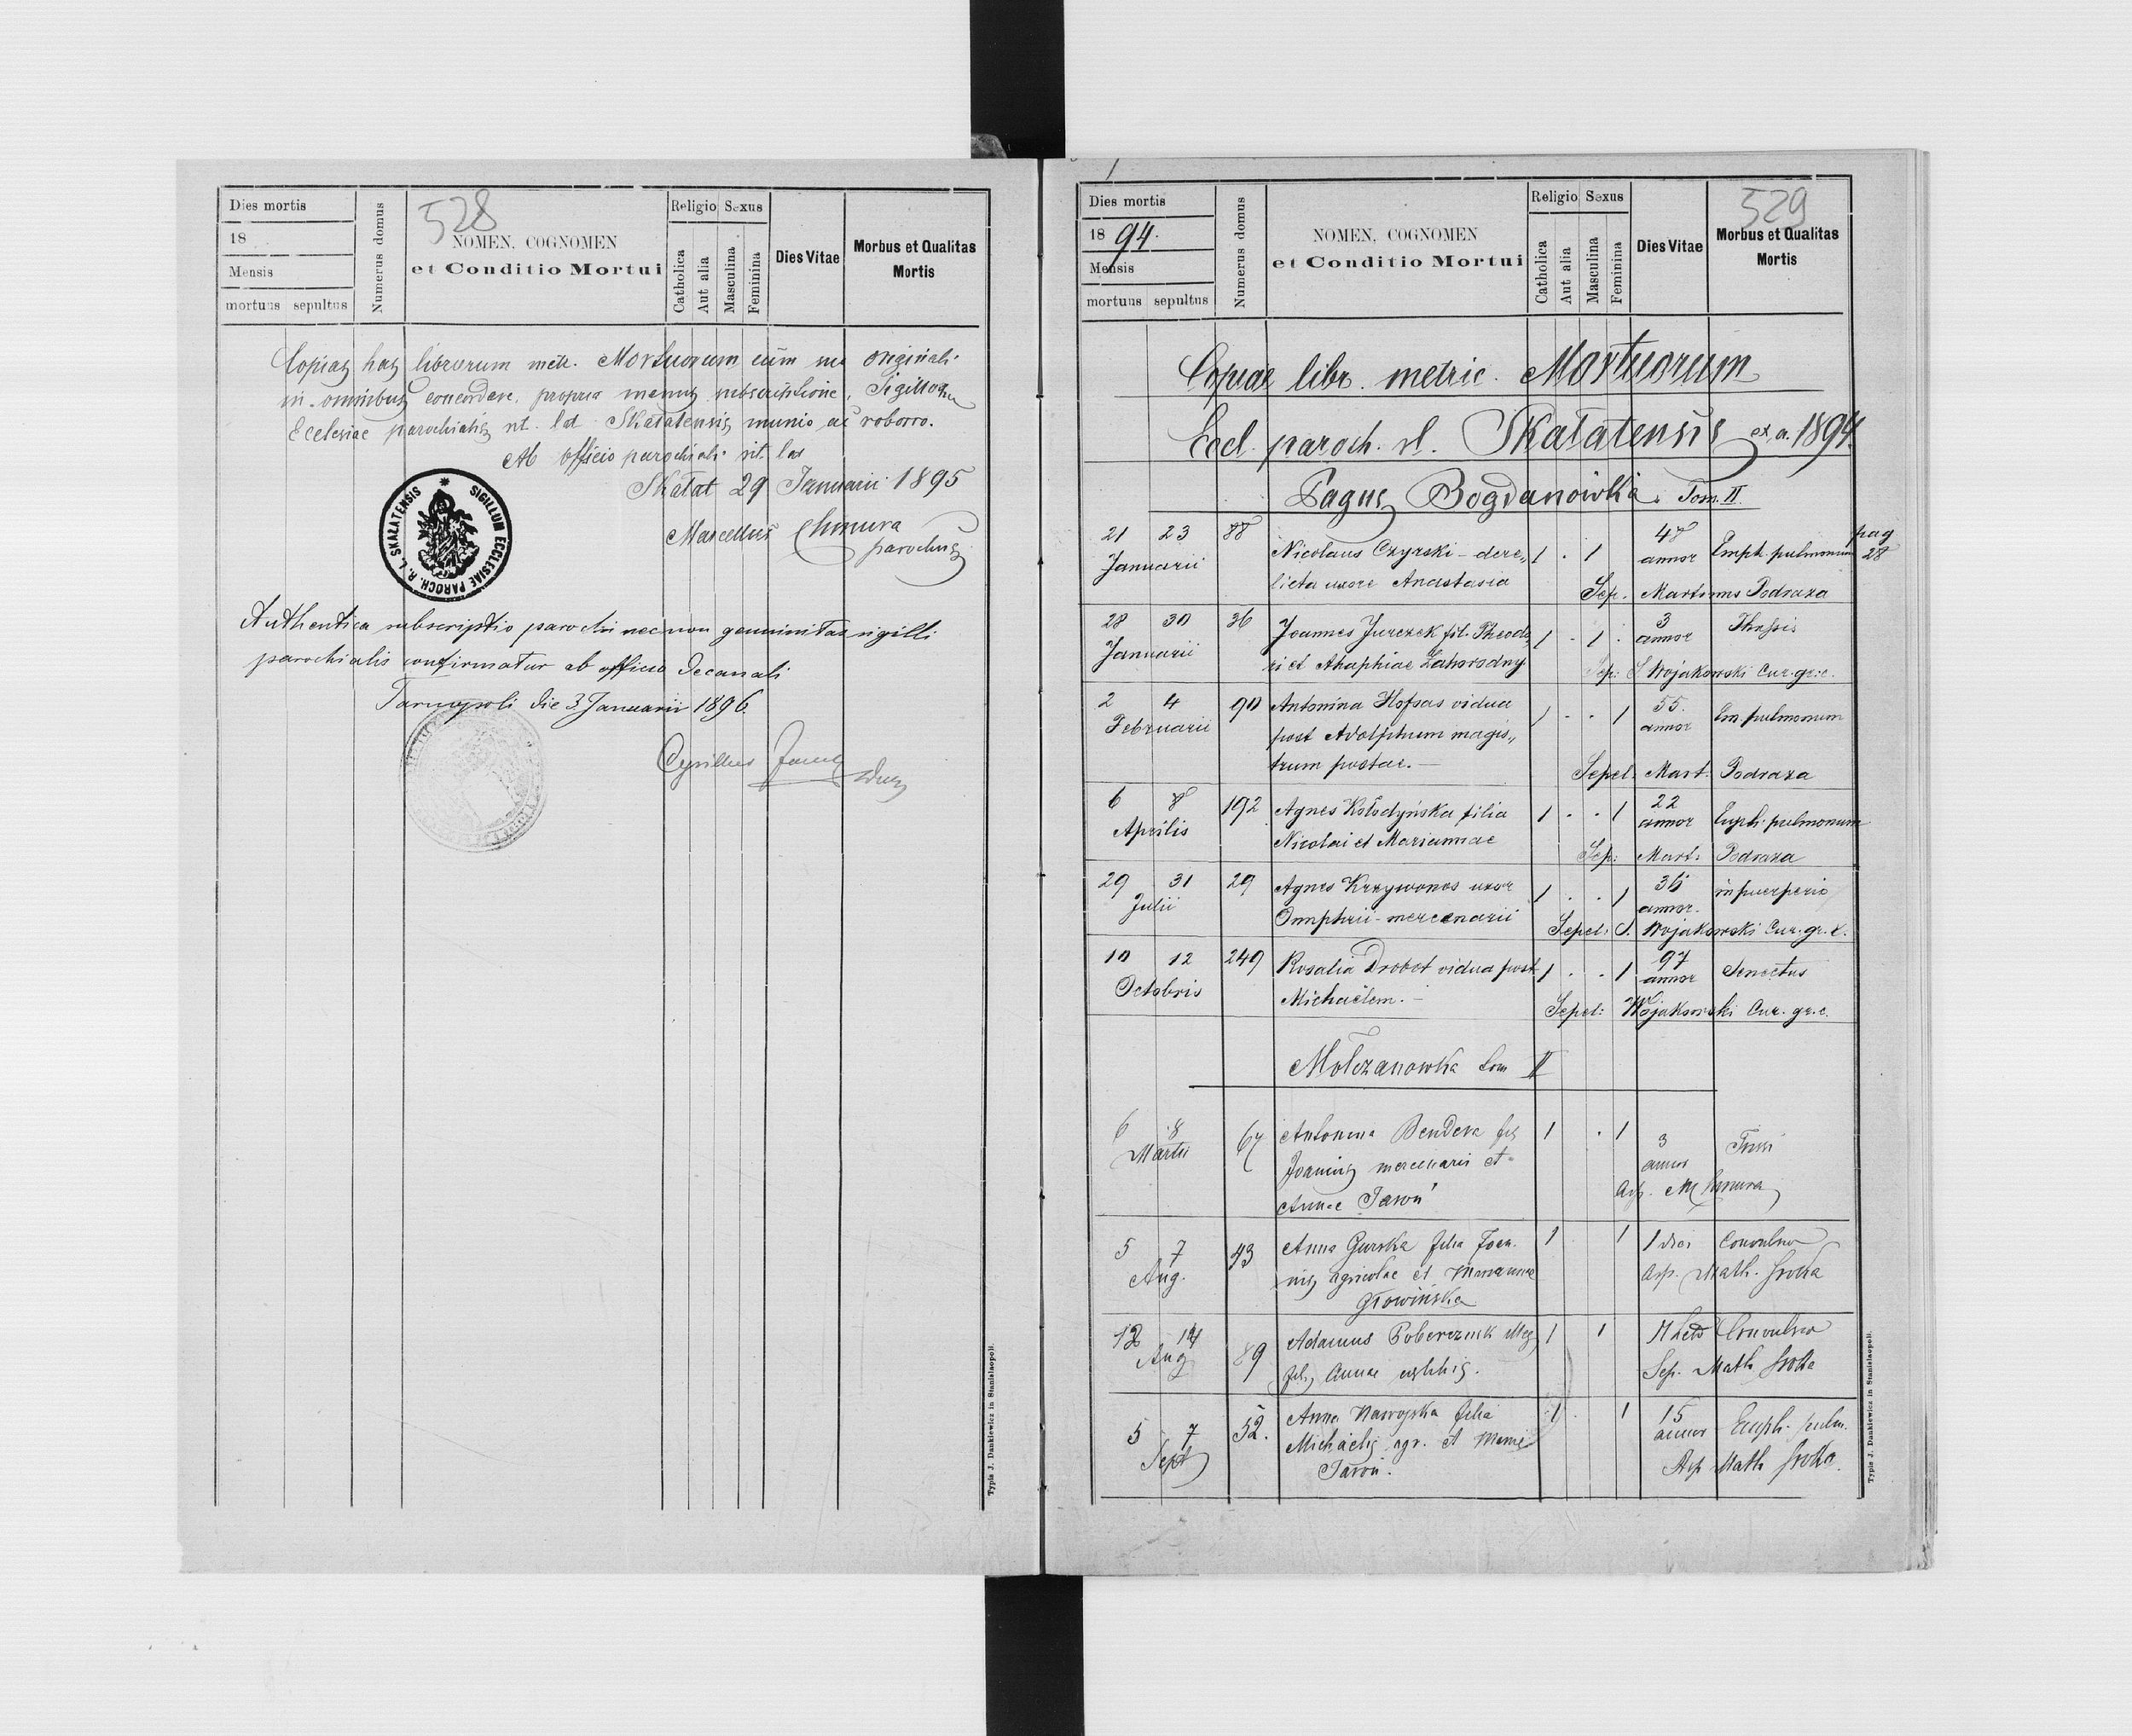 528
Dies mortis
18
Mensis
mortuus sepultus
Numerus domus
NOMEN, COGNOMEN
et Conditio Mortui
Religio Sexus
Catholica
Aut alia
Masculina
Feminina
Dies Vitae
Morbus et Qualitas
Mortis
Copias has librorum metr. Mortuorum cum suo originali
in omnibus concordare, propria manus subscriptione, Sigilloque
Ecclesiae parochialis rit. lat. Skałatensis munio ac roboro.
Ab officio parochiali rit. lat
Skałat 29 Januarii 1895
Marcellus Chmura
parochus
SIGILLUM ECCLESIAE PAROCH. R. L. SKAŁATENSIS
Authentica subscriptio parochi necnon genuinitas sigilli
parochialis confirmatur ab officio Decanali
Tarnopoli die 3 Januarii 1896.
Cyrillus
Typis J. Dankiewicz in Stanislaopoli.
529
Dies mortis
1894.
Mensis
mortuus sepultus
Numerus domus
NOMEN, COGNOMEN
et Conditio Mortui
Religio Sexus
Catholica
Aut alia
Masculina
Feminina
Dies Vitae
Morbus et Qualitas
Mortis
Copiae libr. metric. Mortuorum
Eccl. paroch. rl. Skałatensis ex a. 1894.
Pagus Bogdanówka. Tom. II.
21 23 88 Nicolaus Czyrski - dere„ 1 . 1 48 annor Emph. pulmonum pag 28
Januarii licta uxore Anastasia
Sep. Martinus Podraza
28 30 36 Joannes Jurczek fil. Theodo„ 1 . 1 . 3 annor
Januarii ri et Ahaphiae Zahorodny
Sep: S Wojakowski Cur. gr. c.
2 4 90 Antonina Hofsas vidua 1 . . 1 55. annor Em. pulmonum
Februarii post Adolphum magis„
trum postae. —
Sepel. Mart. Podraza
6 8 192 Agnes Kołodyńska filia 1 . . 1 22 annor Emph. pulmonum
Aprilis Nicolai et Mariannae
Sep: Mart. Podraza
29 31 29 Agnes Krzywonos uxor 1 . . 1 36 annor. in puerperio
Julii Onuphrii - mercenarii
Sepel: S. Wojakowski Cur. gr. c.
10 12 249 Rosalia Drobot vidua post 1 . . 1 97 annor Senectus
Octobris Michaëlem. —
Sepel: Wojakowski Cur. gr. c.
Mołczanówka Tom II
6 8 67 Antonina Bendera fil 1 . 1 3 annor Tussi
Martii Joannis mercenarii et
Annae Jaroń
Asp. M Chmura
5 7 43 Anna Gurska filia Joan. 1 1 1 diei Convulsio
Aug. nis agricolae et Mariannae
Głowińska
Asp. Math. Sroka
12 14 89 Adamus Pobereznik illeg 1 1 Convulsio
Aug fil. Annae
Sep. Math Sroka
5 7 52. Anna Nawojska filia 1 1 15 annor Emph. pulm.
Sept Michaelis agr. et
Jaroń.
Asp Math Sroka.
Typis J. Dankiewicz in Stanislaopoli.